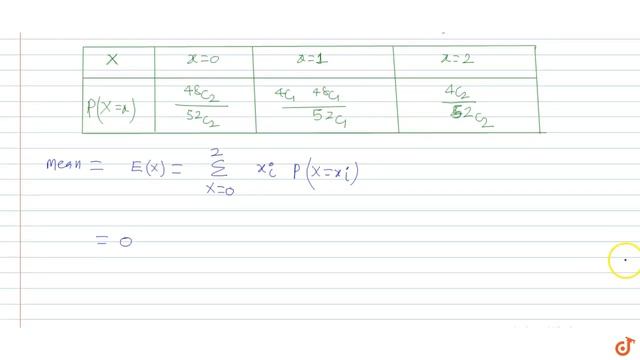 X x=0 x=1 x=2
P(X=x) 48C₂/52C₂ 4C₁ 48C₁/52C₁ 4C₂/52C₂
Mean = E(X) = Σ²ₓ₌₀ xᵢ P(X=xᵢ)
= 0